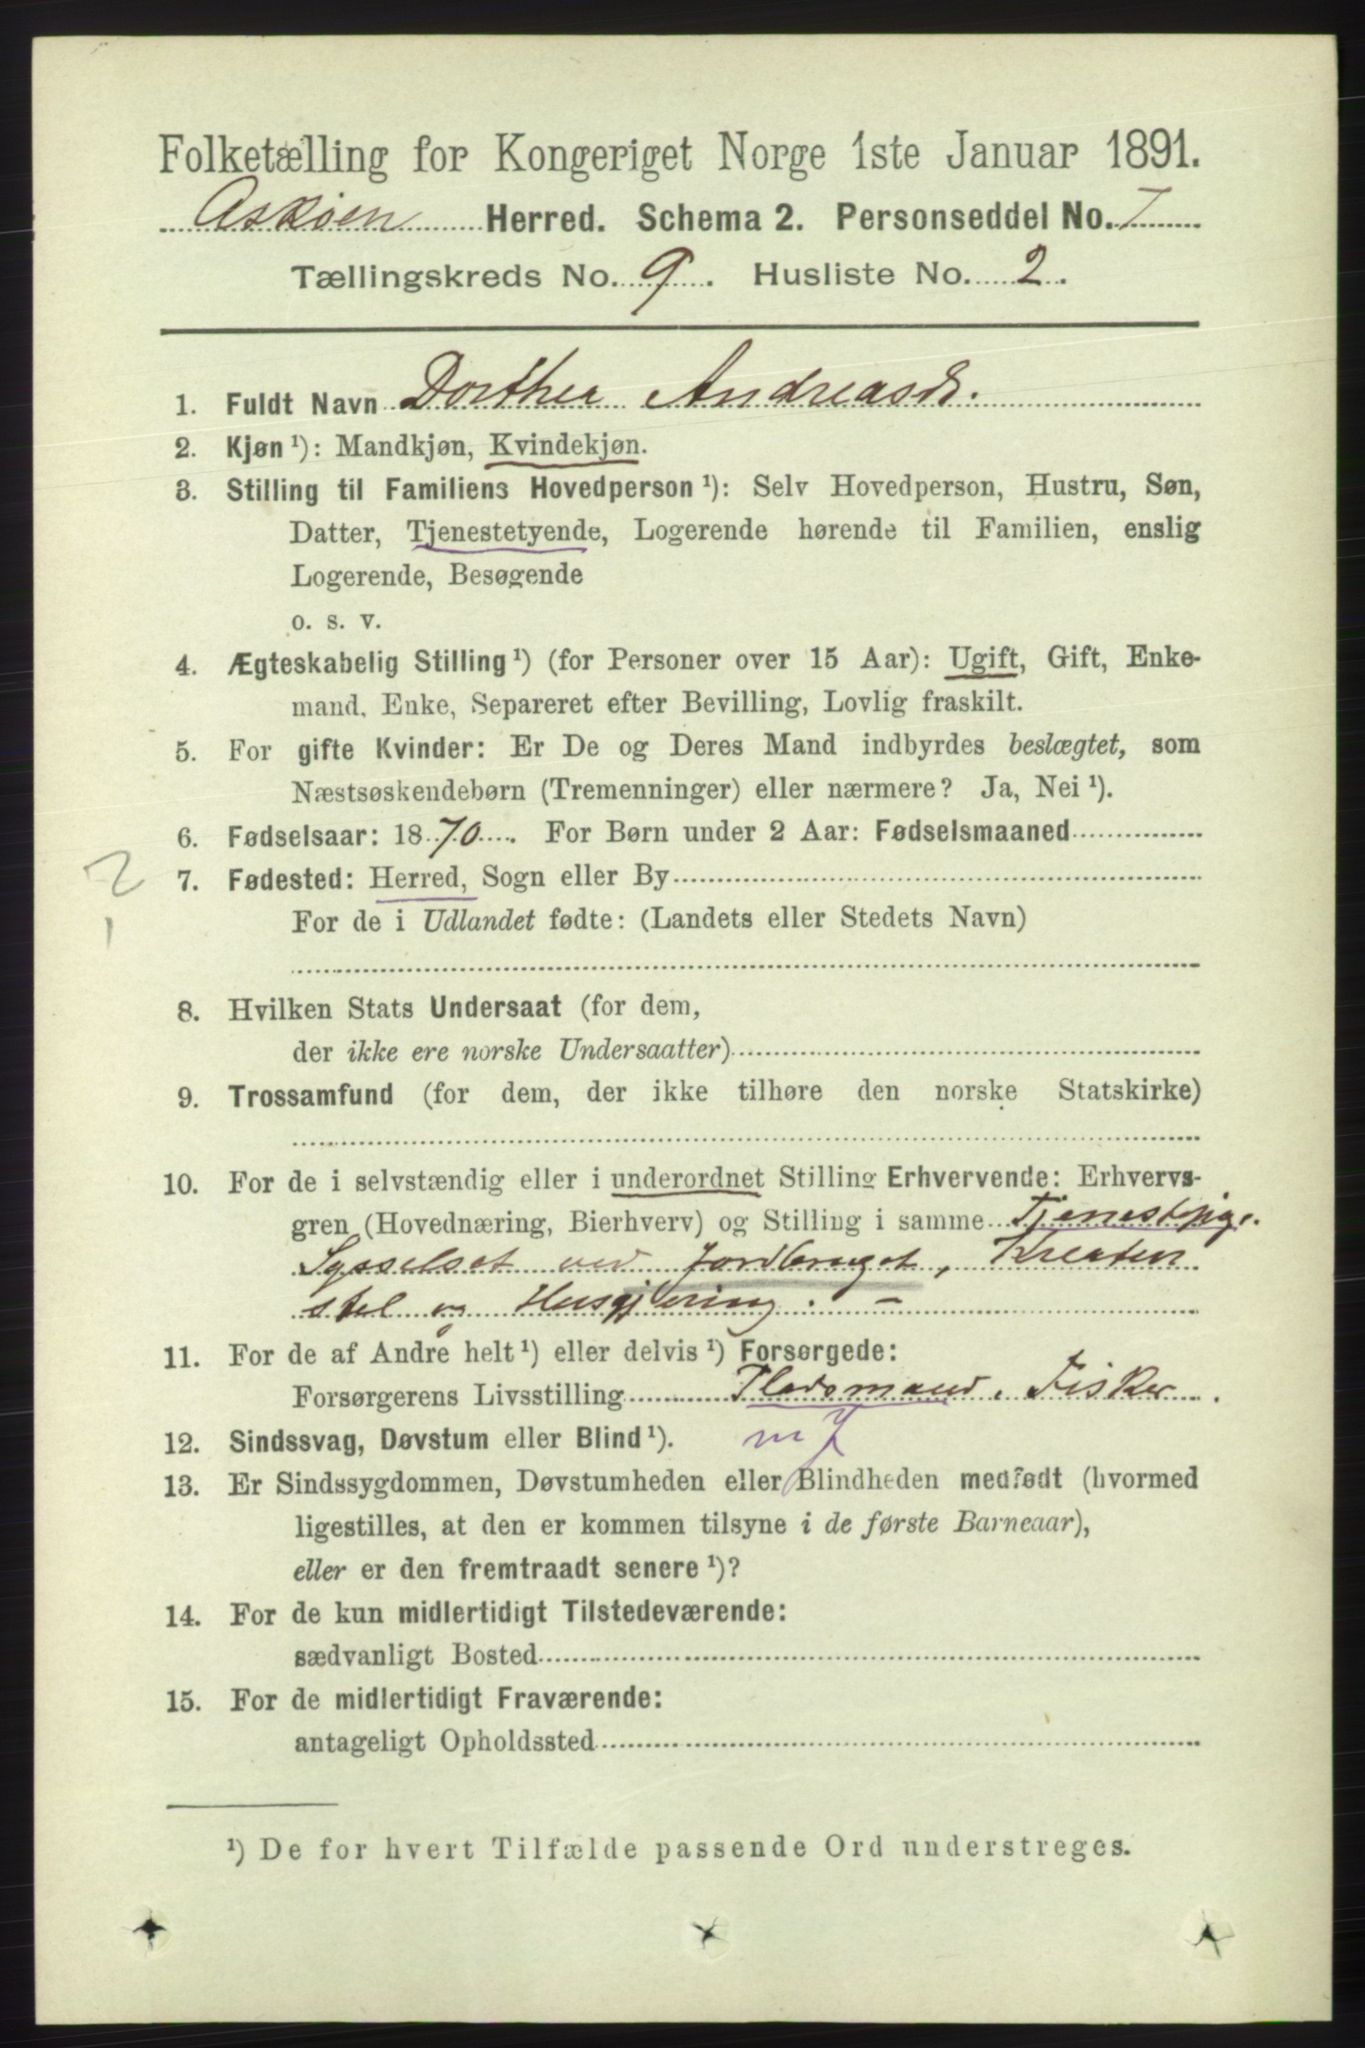 Folketælling for Kongeriget Norge 1ste Januar 1891.
Askøen Herred. Schema 2. Personseddel No. 7
Tællingskreds No. 9. Husliste No. 2.
1. Fuldt Navn Dorthea Andreasd.
2. Kjøn ¹): Mandkjøn, Kvindekjøn.
3. Stilling til Familiens Hovedperson ¹): Selv Hovedperson, Hustru, Søn,
Datter, Tjenestetyende, Logerende hørende til Familien, enslig
Logerende, Besøgende
o. s. v.
4. Ægteskabelig Stilling ¹) (for Personer over 15 Aar): Ugift, Gift, Enke-
mand, Enke, Separeret efter Bevilling, Lovlig fraskilt.
5. For gifte Kvinder: Er De og Deres Mand indbyrdes beslægtet, som
Næstsøskendebørn (Tremenninger) eller nærmere? Ja, Nei ¹).
6. Fødselsaar: 1870. For Børn under 2 Aar: Fødselsmaaned
7. Fødested: Herred, Sogn eller By
For de i Udlandet fødte: (Landets eller Stedets Navn)
8. Hvilken Stats Undersaat (for dem,
der ikke ere norske Undersaatter)
9. Trossamfund (for dem, der ikke tilhøre den norske Statskirke)
10. For de i selvstændig eller i underordnet Stilling Erhvervende: Erhvervs-
gren (Hovednæring, Bierhverv) og Stilling i samme Tjenestpige.
Sysselsat ved Jordbruget, Kreatur
stel og Husgjerning. –
11. For de af Andre helt ¹) eller delvis ¹) Forsørgede:
Forsørgerens Livsstilling Pladsmand, Fisker.
12. Sindssvag, Døvstum eller Blind ¹).
13. Er Sindssygdommen, Døvstumheden eller Blindheden medfødt (hvormed
ligestilles, at den er kommen tilsyne i de første Barneaar),
eller er den fremtraadt senere ¹)?
14. For de kun midlertidigt Tilstedeværende:
sædvanligt Bosted
15. For de midlertidigt Fraværende:
antageligt Opholdssted
¹) De for hvert Tilfælde passende Ord understreges.